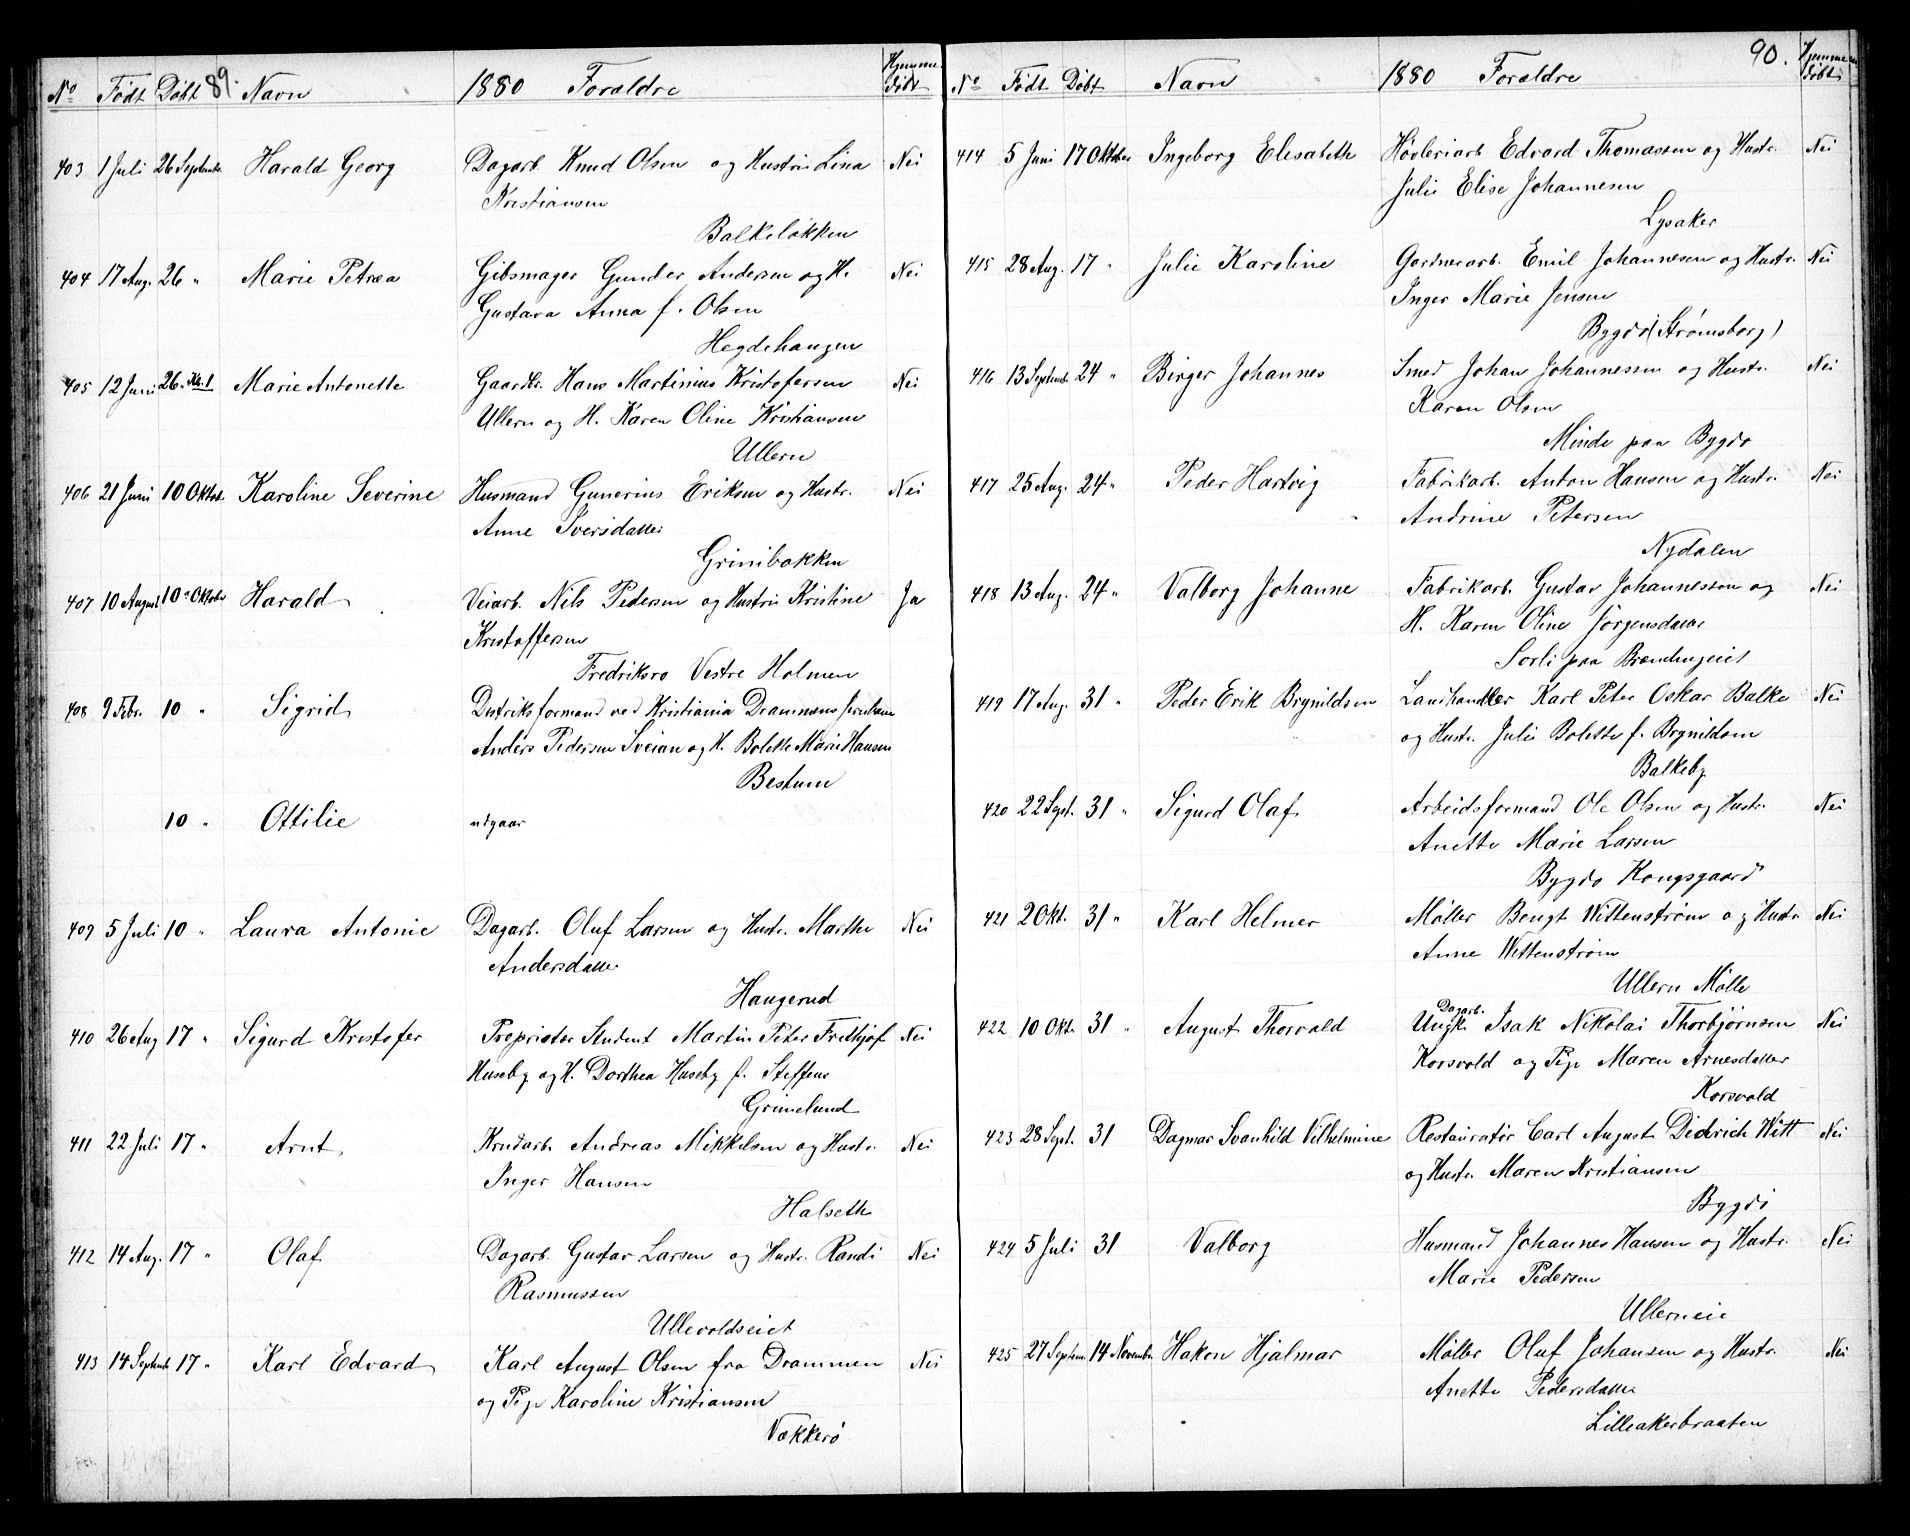 No Født Døbt 89. Navn 1880 Forældre Hjemmedøbt
403 1 Juli 26 Septembr. Harald Georg Dagarb. Knud Olsen og Hustru Lina Nei
Kristiansen
Balkeløkken
404 17 Aug. 26 " Marie Petræa Gibsmager Gunder Andersen og H. Nei
Gustava Anna f. Olsen
Hegdehaugen
405 12 Juni 26. Kl. 1 Marie Antonette Gaardbr. Hans Martinius Kristofersen Nei
Ullern og H. Karen Oline Kristiansen
Ullern
406 21 Juni 10 Oktob. Karoline Severine Husmand Gunerius Eriksen og Hustr. Nei
Anne Iversdatter
Grinibakken
407 10 August 10 Oktober Harald Veiarb. Nils Pedersen og Hustru Kristine Ja
Kristoffersen
Fredriksro Vestre Holmen
408 9 Febr. 10 " Sigrid Distriksformand ved Kristiania Drammens Jernbane
Anders Pedersen Sveian og H. Bolette Marie Hansen
Bestum
10 " Ottilie udgaar
409 5 Juli 10 " Laura Antonie Dagarb. Oluf Larsen og Hustr. Marthe Nei
Andersdatter
Haugerud
410 26 Aug 17 " Sigurd Kristofer Proprietær Student Martin Peter Fredthjof Nei
Huseby og H. Dorthea Huseby f. Steffens
Grimelund
411 22 Juli 17 " Arnt Krudarb. Andreas Mikkelsen og Hustr. Nei
Inger Hansen
Halseth
412 14 Aug. 17 " Olaf Dagarb. Gustav Larsen og Hustr. Randi Nei
Rasmussen
Ullevoldseiet
413 14 Septemb 17 " Karl Edvard Karl August Olsen fra Drammen Nei
og Pige Karoline Kristiansen
Vækkerö
No Født Døbt Navn 1880 Forældre 90. Hjemmedøbt
414 5 Juni 17 Oktober Ingeborg Elisabeth Høvleriarb Edvard Thomassen og Hustr. Nei
Julie Elise Johannesen
Lysaker
415 28 Aug. 17 " Julie Karoline Gartnerarb. Emil Johannesen og Hustr. Nei
Inger Marie Jensen
Bygdö (Strømsborg)
416 13 Septemb 24 " Birger Johannes Smed Johan Johannessen og Hustr. Nei
Karen Olsen
Minde paa Bygdö
417 25 Aug. 24 " Peder Hartvig Fabrikarb. Anton Hansen og Hustr. Nei
Andrine Petersen
Nydalen
418 13 Aug. 24 " Valborg Johanne Fabrikarb. Gustav Johannessen og Nei
H. Karen Oline Jørgensdatter
Sorli paa Brændengeiet
419 17 Aug. 31 " Peder Erik Brynildsen Landhandler Karl Peter Oskar Balke Nei
og Hustr. Julie Bolette f. Brynildsen
Balkeby
420 22 Sept. 31 " Sigurd Olaf Arbeidsformand Ole Olsen og Hustr. Nei
Anette Marie Larsen
Bygdö Kongsgaard
421 2 Okt. 31 " Karl Helmer Møller Bengt Wittenstrøm og Hustr. Nei
Anne Wittenstrøm
Ullern Mølle
Dagarb.
422 10 Okt. 31 " August Thorvald Ungk. Isak Nikolai Thorbjørnsen Nei
Korsvold og Pige Maren Arnesdatter
Korsvold
423 28 Sept. 31 Dagmar Svanhild Vilhelmine Restauratör Carl August Didrich Witt Nei
og Hustr. Maren Kristiansen
Bygdö
424 5 Juli 31 Valborg Husmand Johannes Hansen og Hustr. Nei
Marie Pedersen
Ullerneie
425 27 Septem. 14 Novembr. Hakon Hjalmar Møller Oluf Johansen og Hustr. Nei
Anette Pedersdatter
Lilleakerbraaten